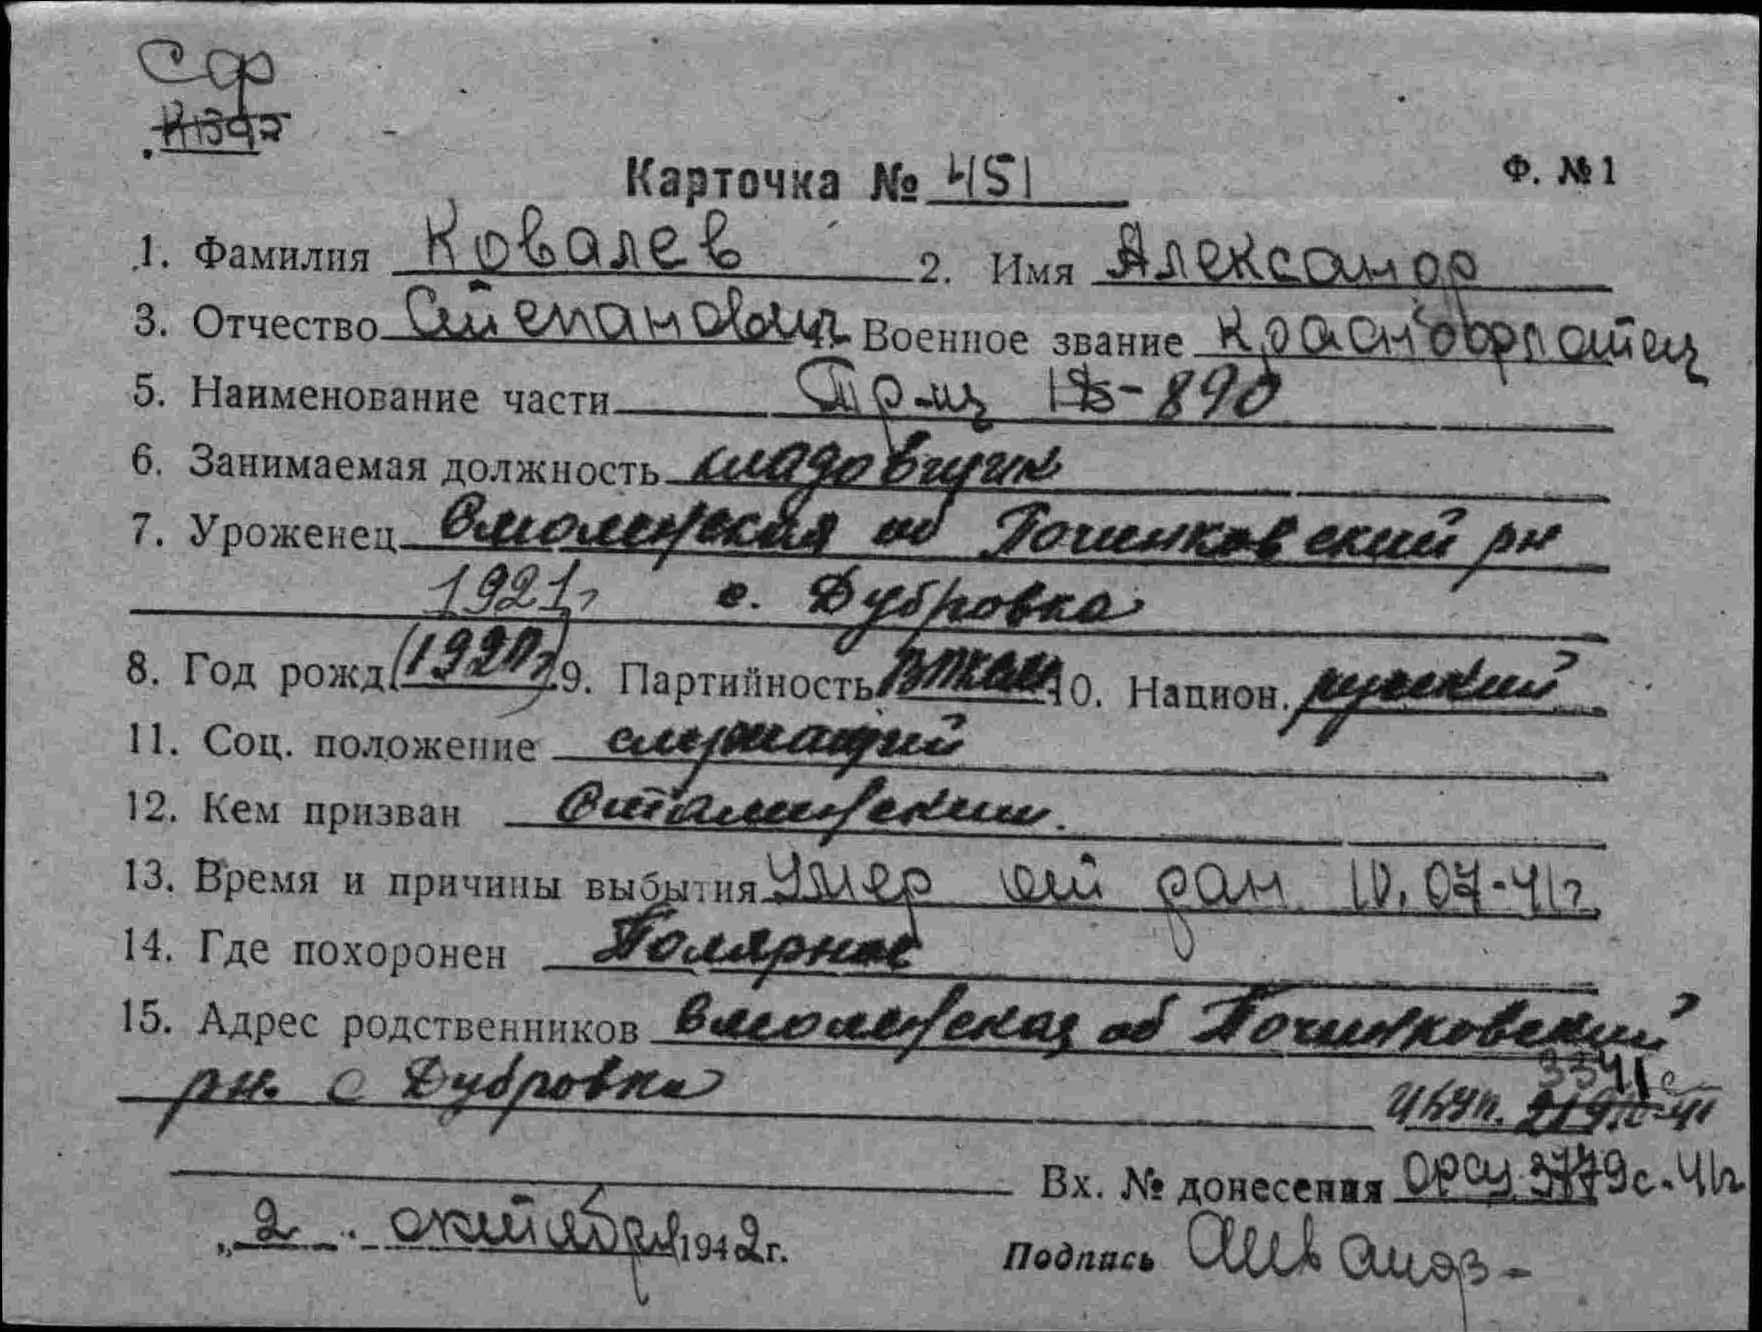 Сф
Карточка № 451
Ф. № 1
1. Фамилия Ковалев 2. Имя Александр
3. Отчество Степанович Военное звание Краснофлотец
5. Наименование части -890
6. Занимаемая должность кладовщик
7. Уроженец Смоленская об Починковский рн
1921г с. Дубровка
8. Год рожд. (1920г) 9. Партийность 10. Национ. русский
11. Соц. положение служащий
12. Кем призван Сталинским.
13. Время и причины выбытия Умер от ран 10.07-41г.
14. Где похоронен Полярное
15. Адрес родственников Смоленская об Починковский
рн. с Дубровка
3341с
Вх. № донесения 3779с-41г
„2 октября 1942г.
Подпись